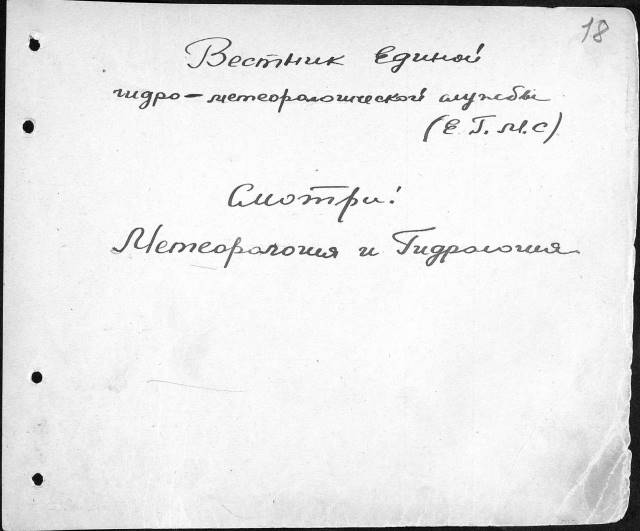 18
Вестник Единой
гидро-метеорологической службы
(Е.Г.М.С)
Смотри!
Метеорология и Гидрология